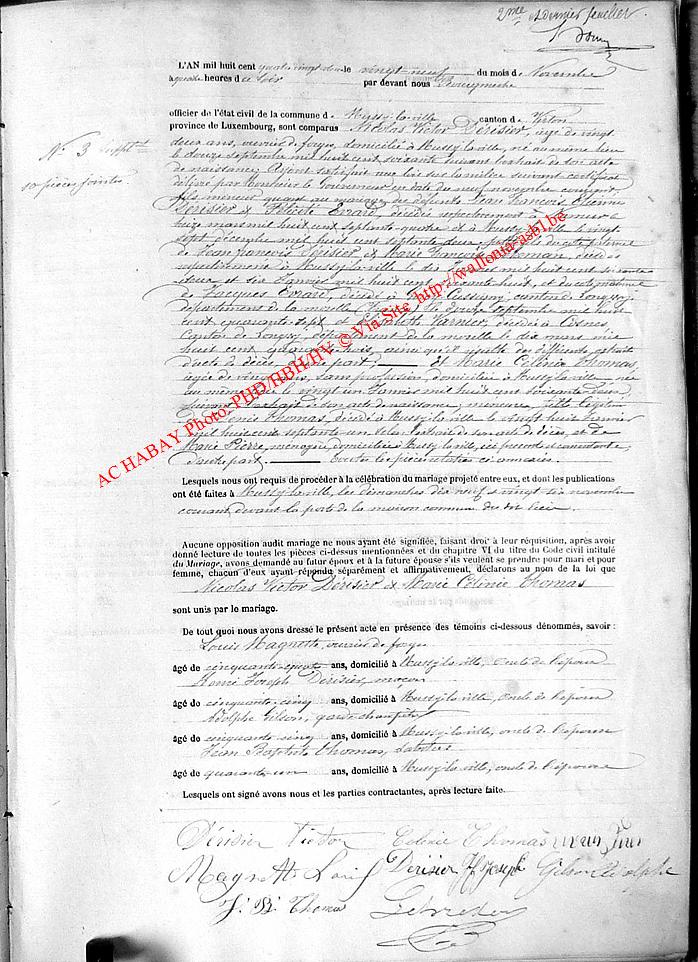 2me et dernier feuillet
L'AN mil huit cent quatre vingt deux le vingt-neuf du mois de Novembre
à quatre heures du soir par devant nous
officier de l'état civil de la commune de Mussy-la-ville canton de Virton
province de Luxembourg, sont comparus Nicolas Victor Dérisier, âgé de vingt
N° 3
deux ans, ouvrier de forges, domicilié à Mussy-la-ville, né au même lieu
le douze septembre mil huit cent soixante suivant extrait de son acte
10 pièces jointes
de naissance, Ayant satisfait aux lois sur la milice suivant certificat
délivré par Monsieur le Gouverneur en date du neuf novembre courant,
fils mineur quant au mariage des défunts Jean François Etienne
Dérisier et Félicité Evrard, décédés respectivement à Namur le
mars mil huit cent septante-quatre et à Mussy-la-ville le vingt
sept décembre mil huit cent septante deux, petit-fils du côté paternel
de Jean François Dérisier et Marie Françoise décédés
respectivement à Mussy-la-ville le mil huit cent soixante
deux et six Janvier mil huit cent et du côté maternel
de Jacques Evrard, décédé à canton de Longwy
département de la moselle le douze septembre mil huit
cent quarante-sept et Elisabeth Varnier, décédée à Cosnes
Canton de Longwy, département de la moselle le dix mars mil
huit cent quarante-huit, ainsi qu'il appert des différents extraits
d'acte de décès part; et Marie Célinie Thomas,
âgée de vingt ans, sans profession, domiciliée à Mussy-la-ville, née
au même lieu le vingt un Janvier mil huit cent soixante deux
suivant extrait de son acte de naissance, mineure, fille légitime
de Denis Thomas, décédé à Mussy-la-ville le vingt huit Janvier
mil huit cent septante-un selon extrait de son acte de décès, et de
Marie Pierre, ménagère, domiciliée à Mussy-la-ville, ici présente et consentante,
d'autre part. Toutes les pièces relatées ci-annexées.
Lesquels nous ont requis de procéder à la célébration du mariage projeté entre eux, et dont les publications
ont été faites à Mussy-la-ville, les dimanches dix neuf et vingt six novembre
courant, devant la porte de la maison commune du dit lieu.
Aucune opposition audit mariage ne nous ayant été signifiée, faisant droit à leur réquisition, après avoir
donné lecture de toutes les pièces ci-dessus mentionnées et du chapitre VI du titre du Code civil intitulé
du Mariage, avons demandé au futur époux et à la future épouse s'ils veulent se prendre pour mari et pour
femme, chacun d'eux ayant répondu séparément et affirmativement, déclarons au nom de la loi que
Nicolas Victor Dérisier et Marie Célinie Thomas
sont unis par le mariage.
De tout quoi nous avons dressé le présent acte en présence des témoins ci-dessous dénommés, savoir :
Louis Magnette, ouvrier de forges
âgé de cinquante-quatre ans, domicilié à Mussy-la-ville, oncle de l'époux
Henri Joseph Dérisier, maçon
âgé de cinquante-cinq ans, domicilié à Mussy-la-ville, oncle de l'époux
Adolphe Gilson, garde champêtre
âgé de cinquante-cinq ans, domicilié à Mussy-la-ville, oncle de l'époux
Jean Baptiste Thomas,
âgé de quarante-un ans, domicilié à Mussy-la-ville, oncle de l'épouse
Lesquels ont signé avons nous et les parties contractantes, après lecture faite.
Dérisier Victor Celinie Thomas
Magnette Louis Dérisier H Joseph Gilson Adolphe
J. B. Thomas
AC HABAY Photo: PHD/HBH/HV © Via Site http://wallonia-asbl.be